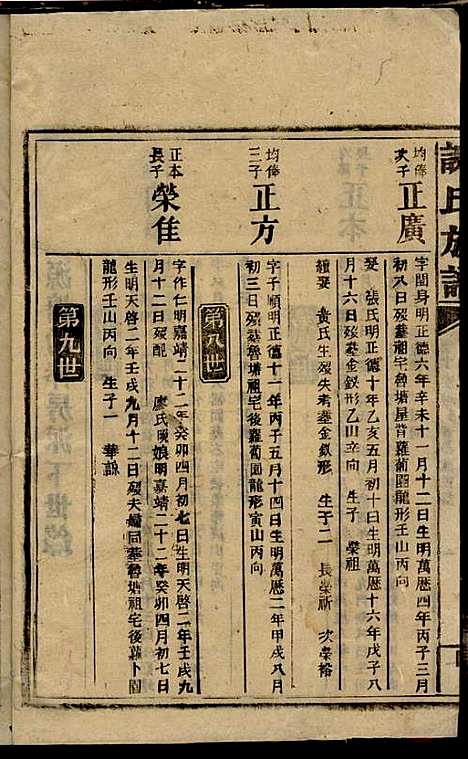 氏族譜
均條次子
正廣
字閏身明正德六年辛未十一月十二日生明萬曆四年丙子三月
初八日歿墓祖宅魯塘屋背蘿蔔園龍形壬山丙向
娶 張氏明正德十年乙亥五月初十日生明萬曆十六年戊子八
月十六日歿墓金釵形乙山辛向 生子一 榮祖
續娶 黃氏生歿失考墓金釵形 生子二 長榮祈 次榮裕
均條三子
正方
字子順明正德十一年丙子五月十四日生明萬曆二年甲戌八月
初三日歿墓魯塘祖宅後蘿蔔園龍形寅山丙向
第八世
正本長子
榮隹
字作仁明嘉靖二十二年癸卯四月初七日生明天啓二年壬戌九
月十二日歿配 廖氏 娘明嘉靖二十二年癸卯四月初七日
生明天啓二年壬戌九月十二日歿夫婦同墓魯塘祖宅後蘿卜園
龍形壬山丙向 生子一 華諒
第九世